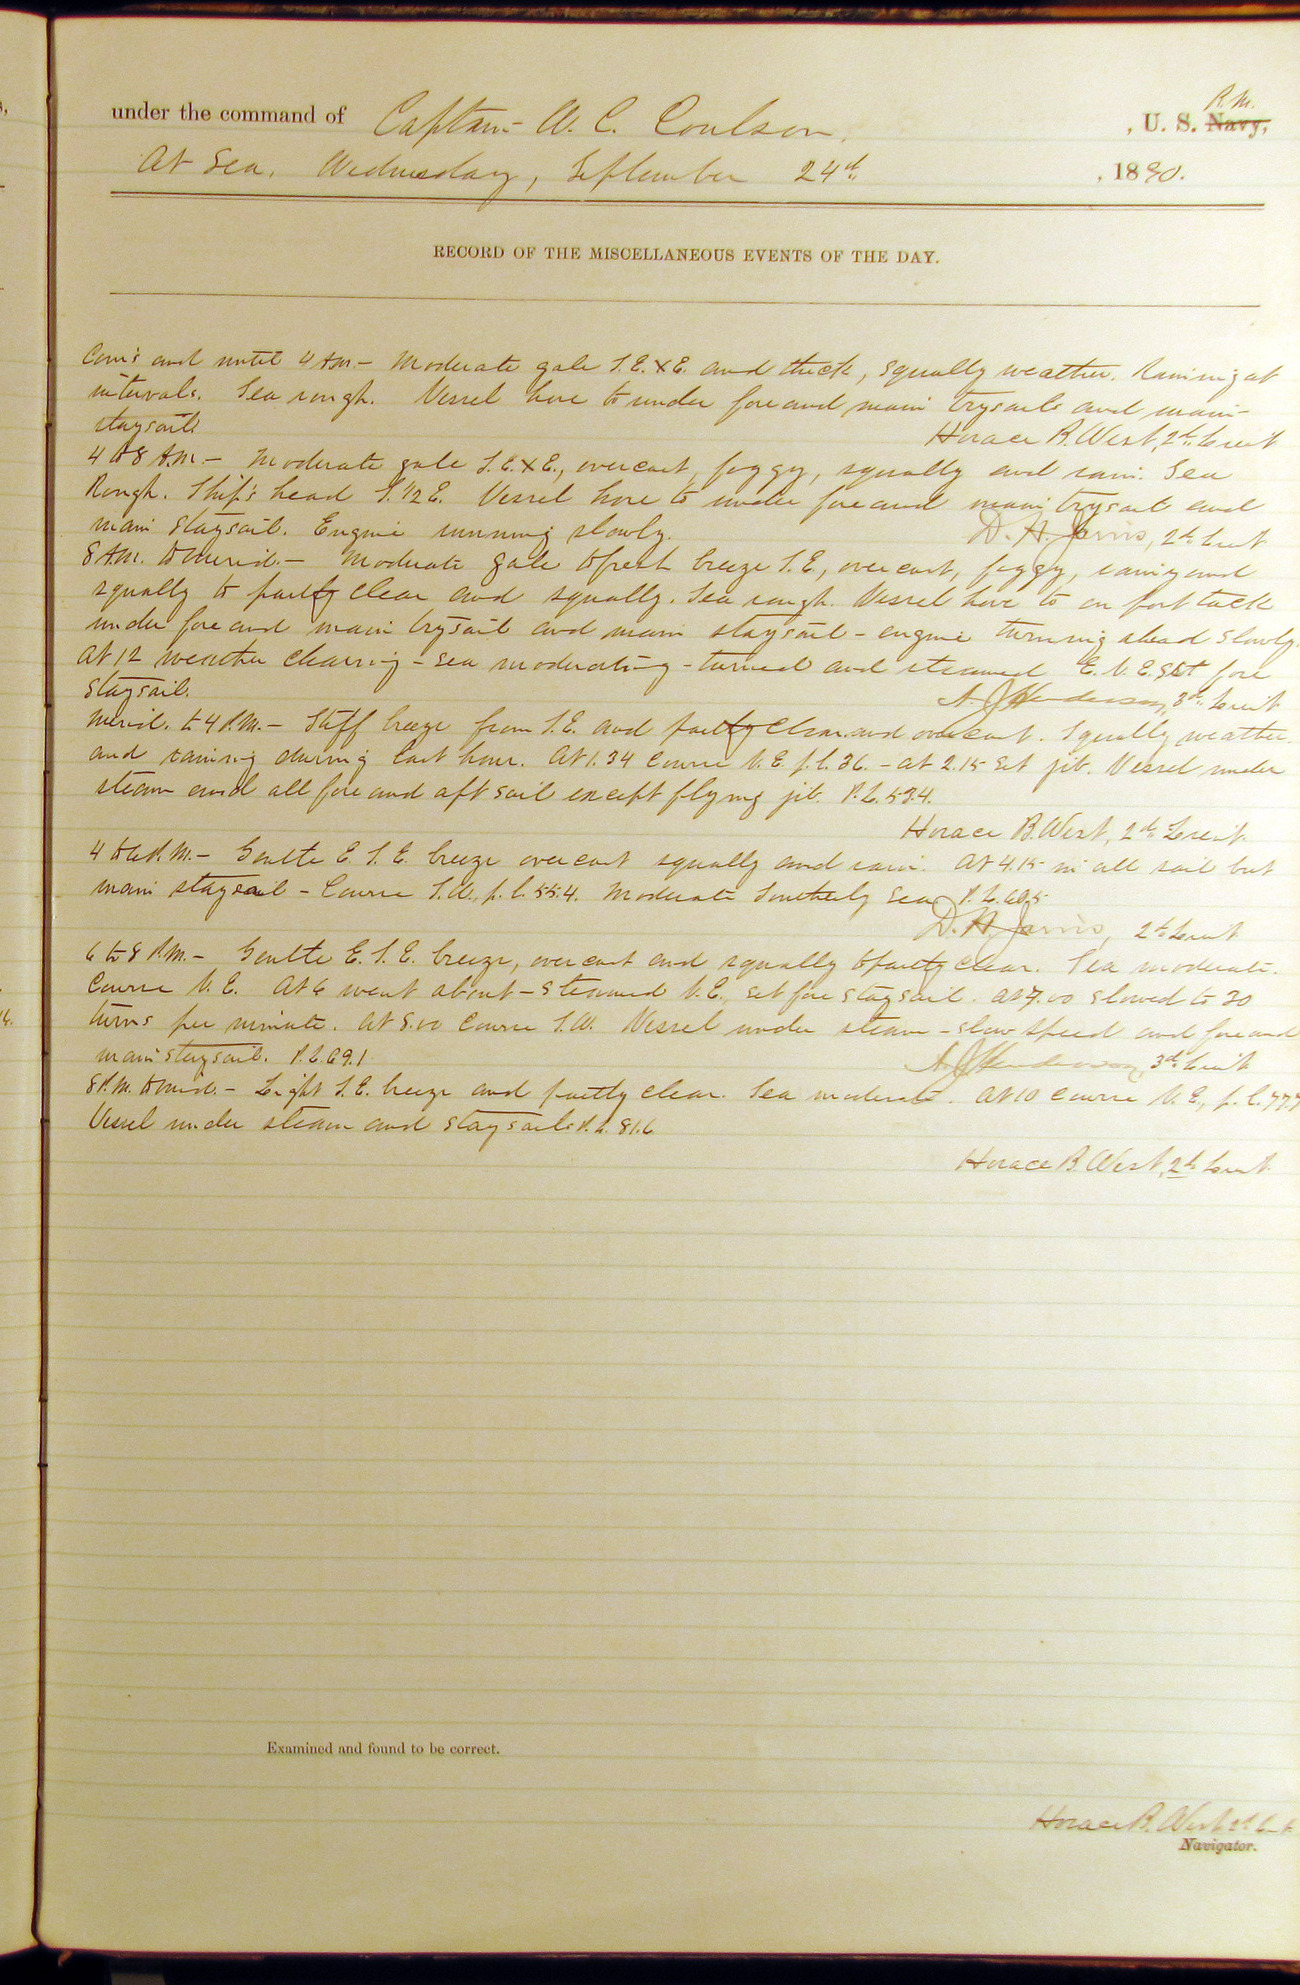 under the command of Captain W. C. Coulson, , U. S. Navy, R. M.
At Sea, Wednesday, September 24th, , 1890.
RECORD OF THE MISCELLANEOUS EVENTS OF THE DAY.
Com's and until 4 A.M. – Moderate gale S.E. x E. and thick, squally weather. Raining at
intervals. Sea rough. Vessel hove to under fore and main trysails and main-
staysail. Horace B. West, 2d Lieut
4 to 8 A.M. – Moderate gale S.E. x E., overcast, foggy, squally and rain. Sea
Rough. Ship's head S. 1/2 E. Vessel hove to under fore and main trysail and
main staysail. Engine running slowly. D. H. Jarvis, 2d Lieut
8 A.M. to merid. – Moderate gale to fresh breeze S.E., overcast, foggy, rainy and
squally to partly clear and squally. Sea rough. Vessel hove to on port tack
under fore and main trysail and main staysail – engine turning ahead slowly.
At 12 weather clearing – sea moderating – turned and steamed E.N.E. set fore
staysail. A. J. Henderson, 3d Lieut
Merid. to 4 P.M. – Stiff breeze from S.E. and partly clear and overcast. Squally weather
and raining during last hour. At 1.34 Course N.E. p.l. 36. – at 2.15 set jib. Vessel under
steam and all fore and aft sail except flying jib. P.L. 53.4.
Horace B. West, 2d Lieut.
4 to 6 P.M. – Gentle E.S.E. breeze overcast squally and rain. At 4.15 in all sail but
main staysail – Course S.W., p.l. 55.4. Moderate Southerly Sea P.L. 60.5
D. H. Jarvis, 2d Lieut
6 to 8 P.M. – Gentle E.S.E. breeze, overcast and squally to partly clear. Sea moderate.
Course N.E. At 6 went about – steamed N.E., set fore staysail. at 7.00 slowed to 30
turns per minute. At 8.00 Course S.W. Vessel under steam – slow speed and fore and
main staysail. P.L. 69.1 A. J. Henderson, 3d Lieut
8 P.M. to mid. – Light S.E. breeze and partly clear. Sea moderate. At 10 course N.E., p.l. 77.7
Vessel under steam and staysails P.L. 81.6
Horace B. West, 2d Lieut.
Examined and found to be correct.
Horace B. West 2d Lieut
Navigator.